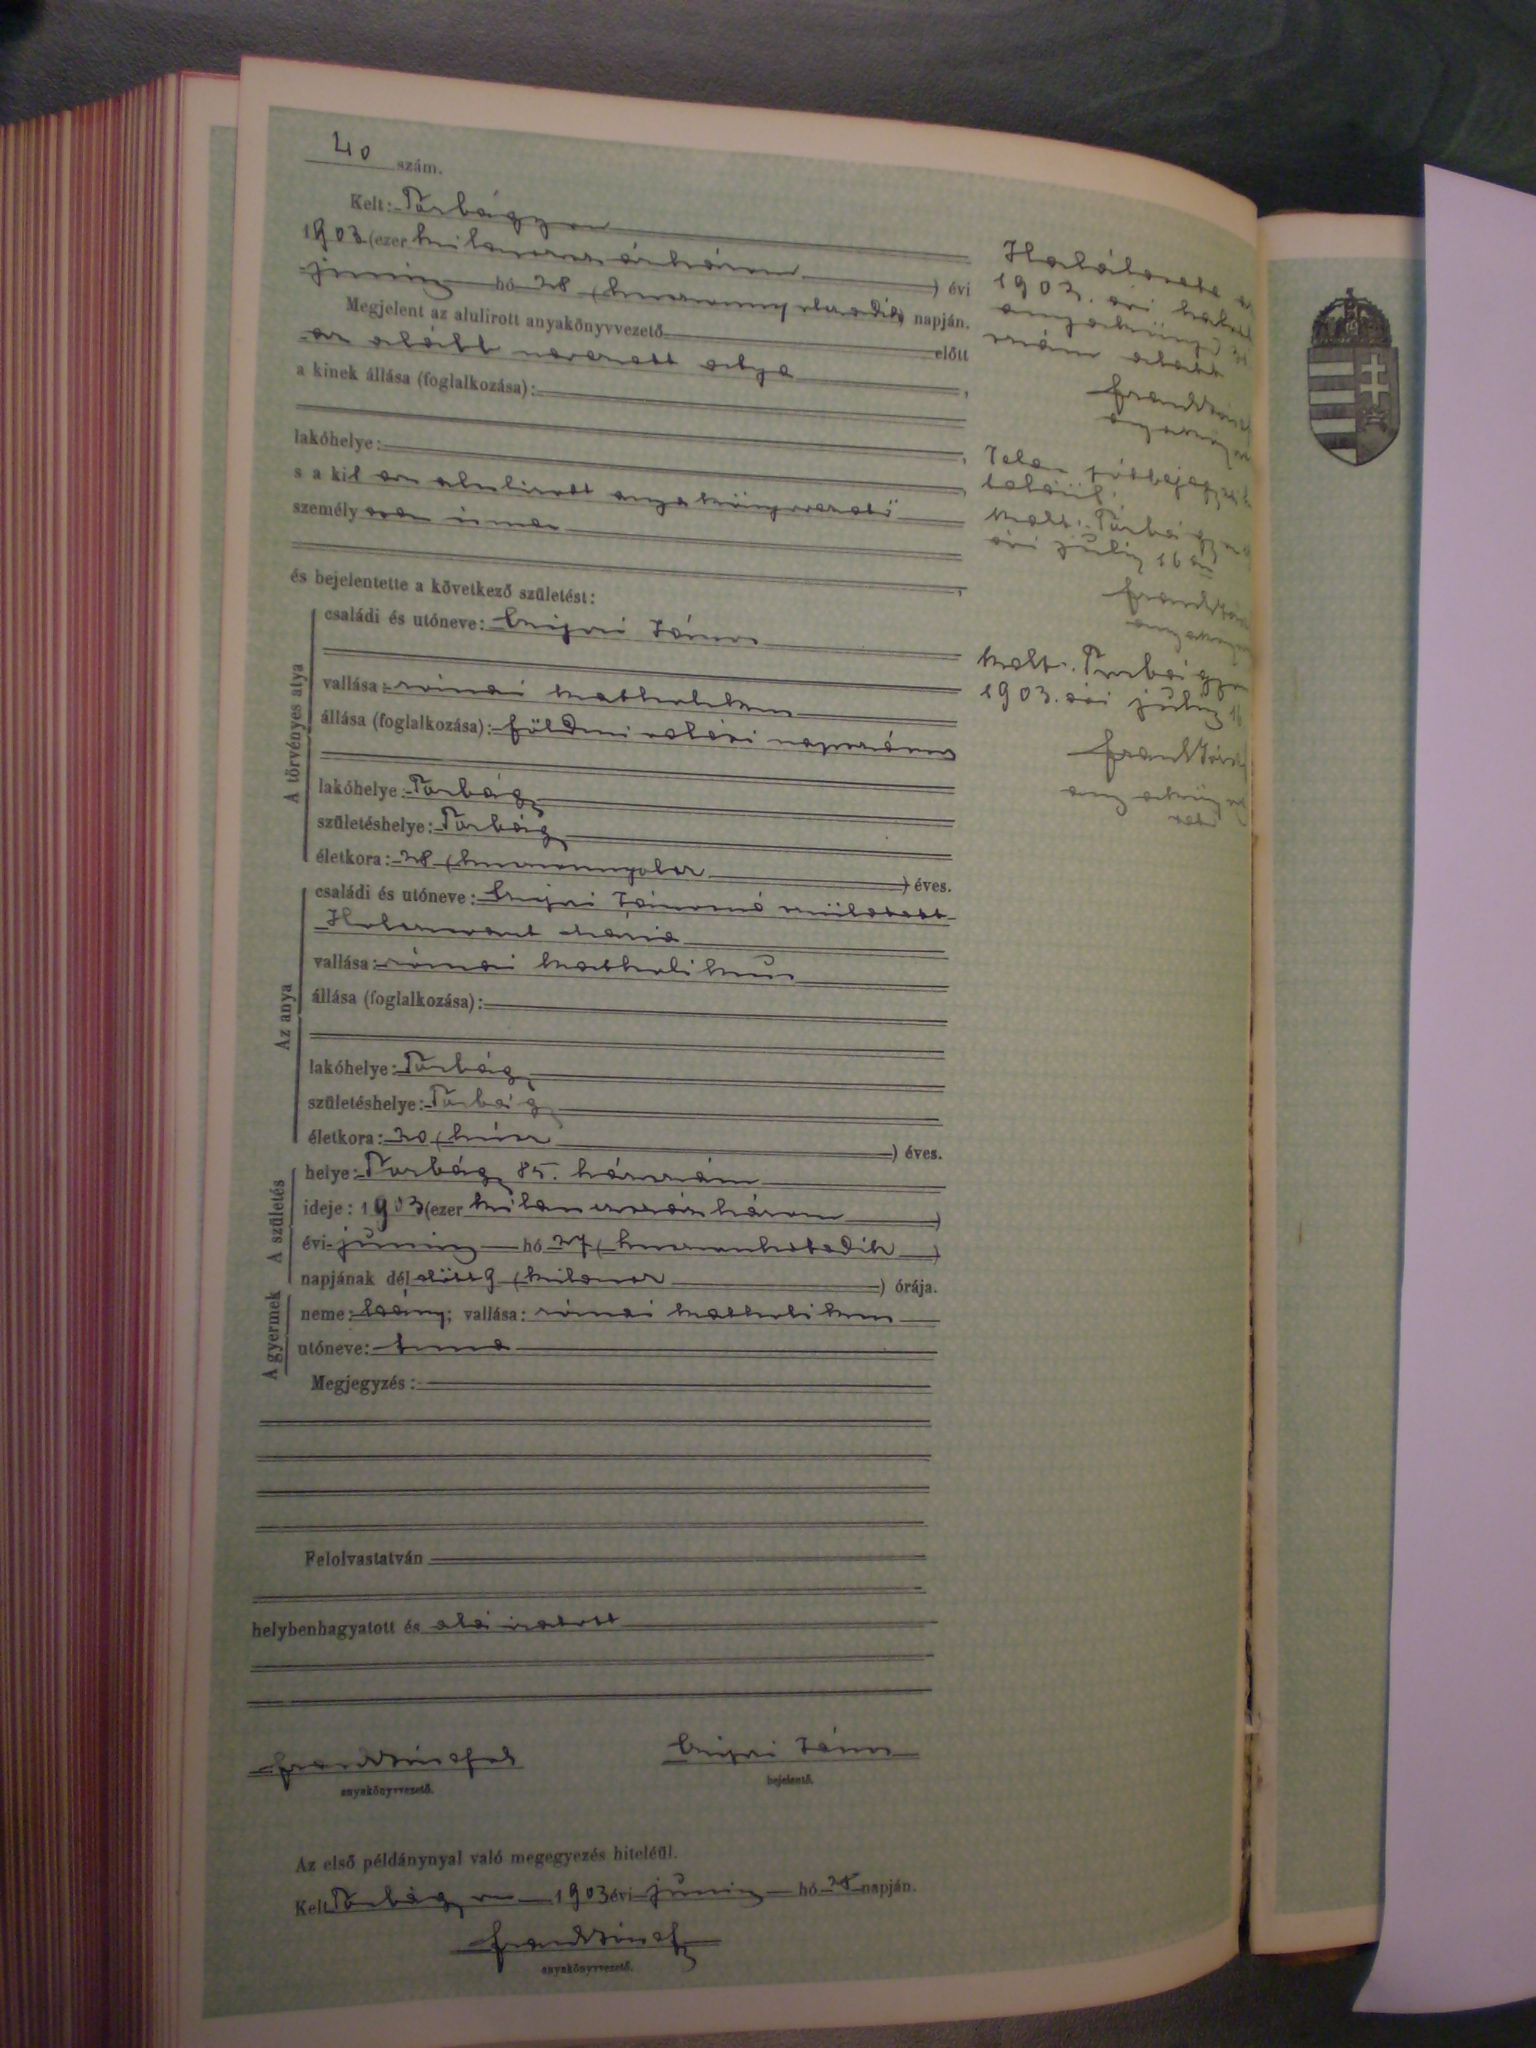 40 szám.
Kelt: Torbágyon
1903 (ezer kilenczszázhárom) évi
junius hó 28 (huszonnyolczadik) napján.
Megjelent az alulirott anyakönyvvezető előtt
az alább nevezett atya,
a kinek állása (foglalkozása):
lakóhelye:
s a kit az alulirott anyakönyvvezető
személyesen ismer
és bejelentette a következő születést:
A törvényes atya
családi és utóneve: János
vallása: római katholikus
állása (foglalkozása): földmivelési napszámos
lakóhelye: Torbágy
születéshelye: Torbágy
életkora: 28 (huszonnyolcz) éves.
Az anya
családi és utóneve: Jánosné született
Mária
vallása: római katholikus
állása (foglalkozása):
lakóhelye: Torbágy
születéshelye: Torbágy
életkora: 20 (húsz) éves.
A születés
helye: Torbágy 85. házszám
ideje: 1903 (ezer kilenczszázhárom)
évi junius hó 27 (huszonhetedik)
napjának délelőtt 9 (kilencz) órája.
A gyermek
neme: leány; vallása: római katholikus
utóneve: Anna
Megjegyzés:
Felolvastatván
helybenhagyatott és aláiratott
anyakönyvvezető.
János
bejelentő.
Az első példánynyal való megegyezés hiteléül.
Kelt Torbágyon 1903 évi junius hó 28 napján.
anyakönyvvezető.
Halálesete
1903. évi
szám alatt
Jelen
Kelt: Torbágyon
évi julius 16 án
Kelt: Torbágyon
1903. évi julius 16